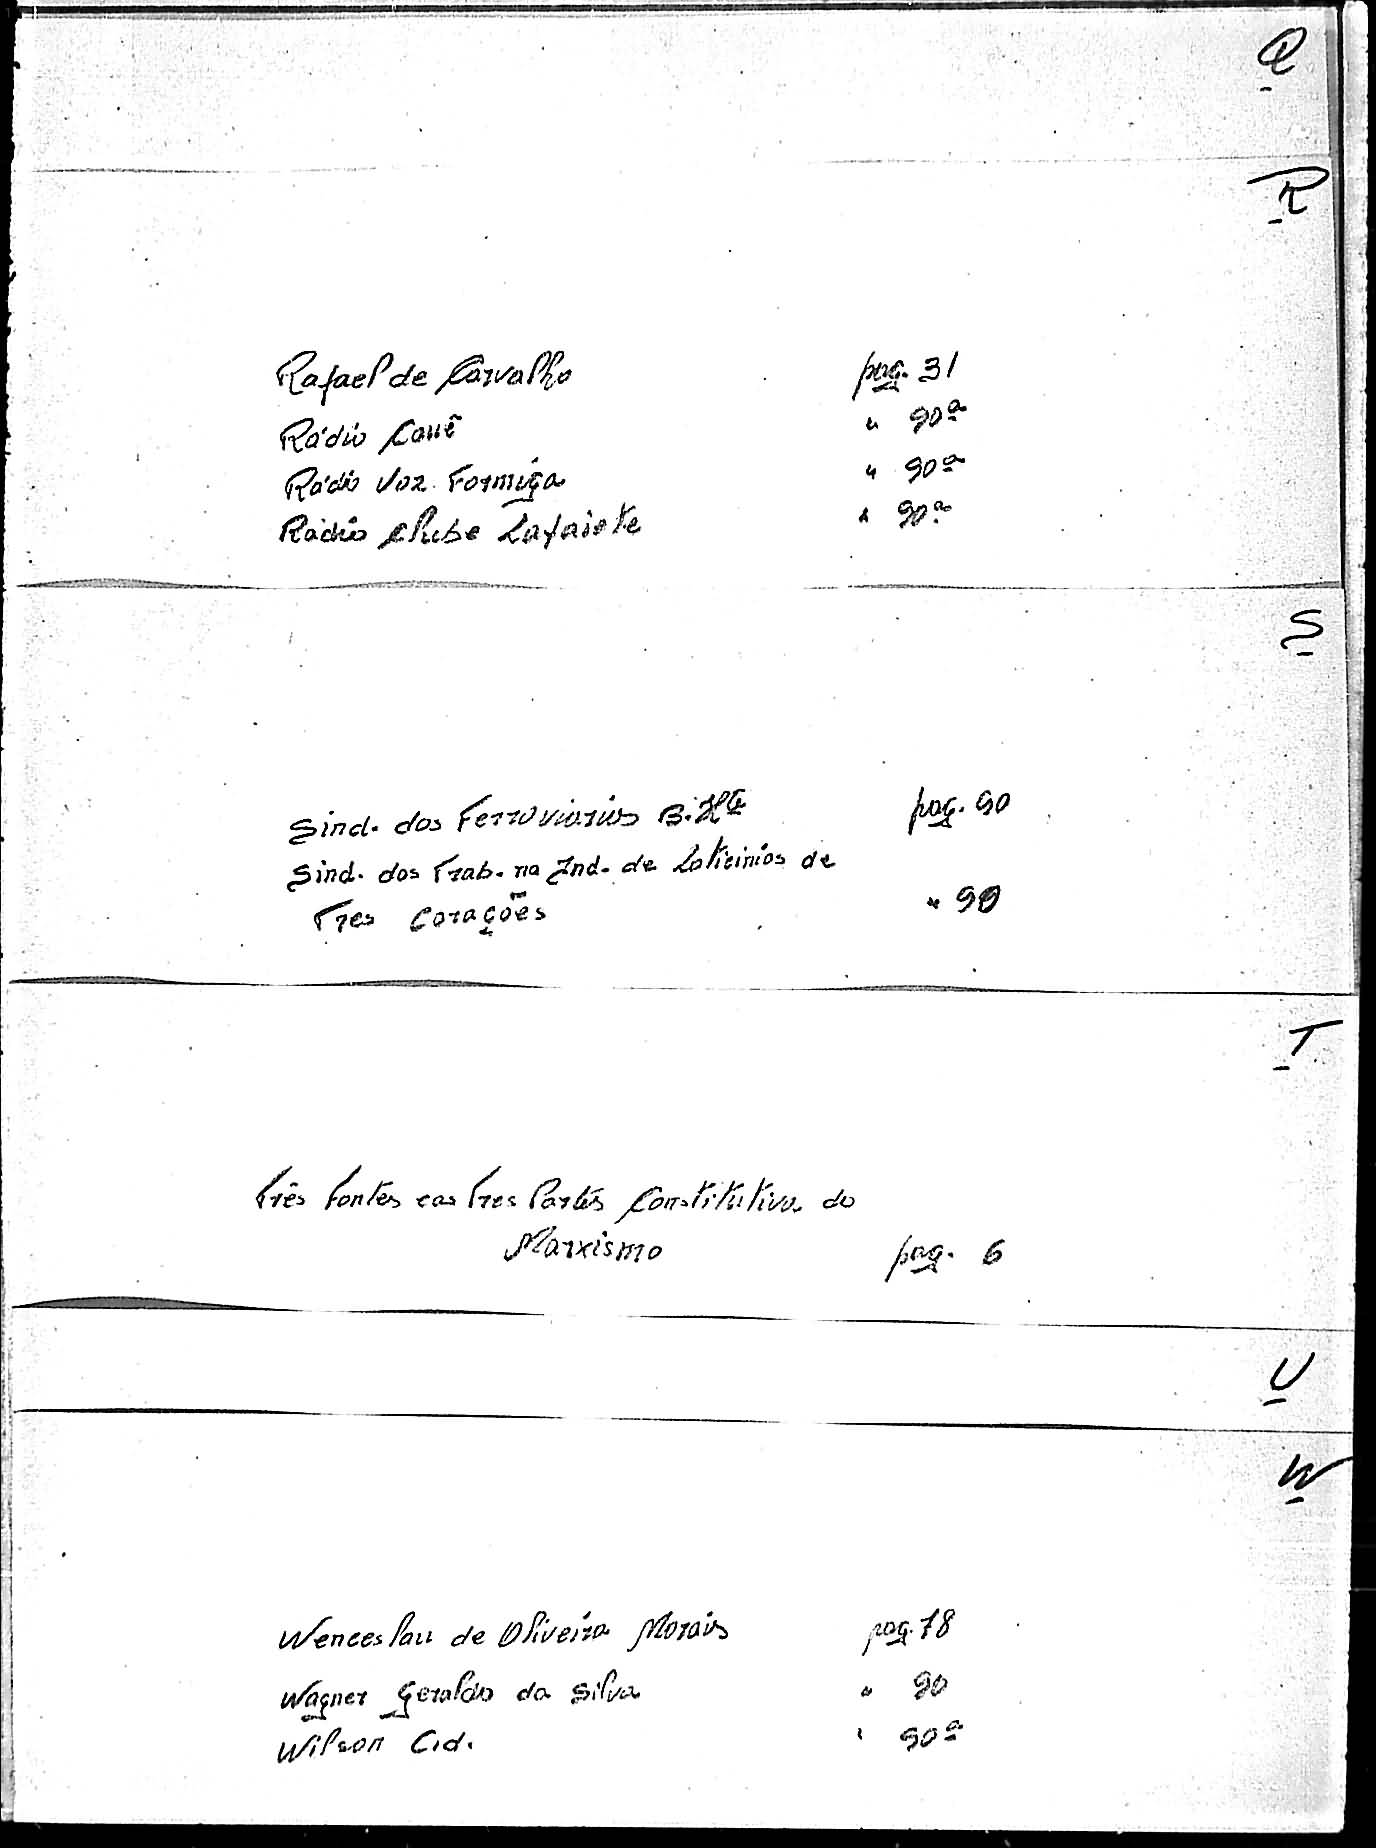 Q
R
Rafael de Carvalho pag. 31
Rádio Cauê " 90ª
Rádio Voz Formiga " 90ª
Rádio Clube Lafaiete " 90ª
S
Sind. dos Ferroviarios B. Hte pag. 90
Sind. dos Trab. na Ind. de Laticinios de
Tres Corações " 90
T
Três Fontes e as Tres Partes Constitutiva do
Marxismo pag. 6
U
W
Wenceslau de Oliveira Morais pag. 78
Wagner Geraldo da Silva " 90
Wilson Cid. " 90ª